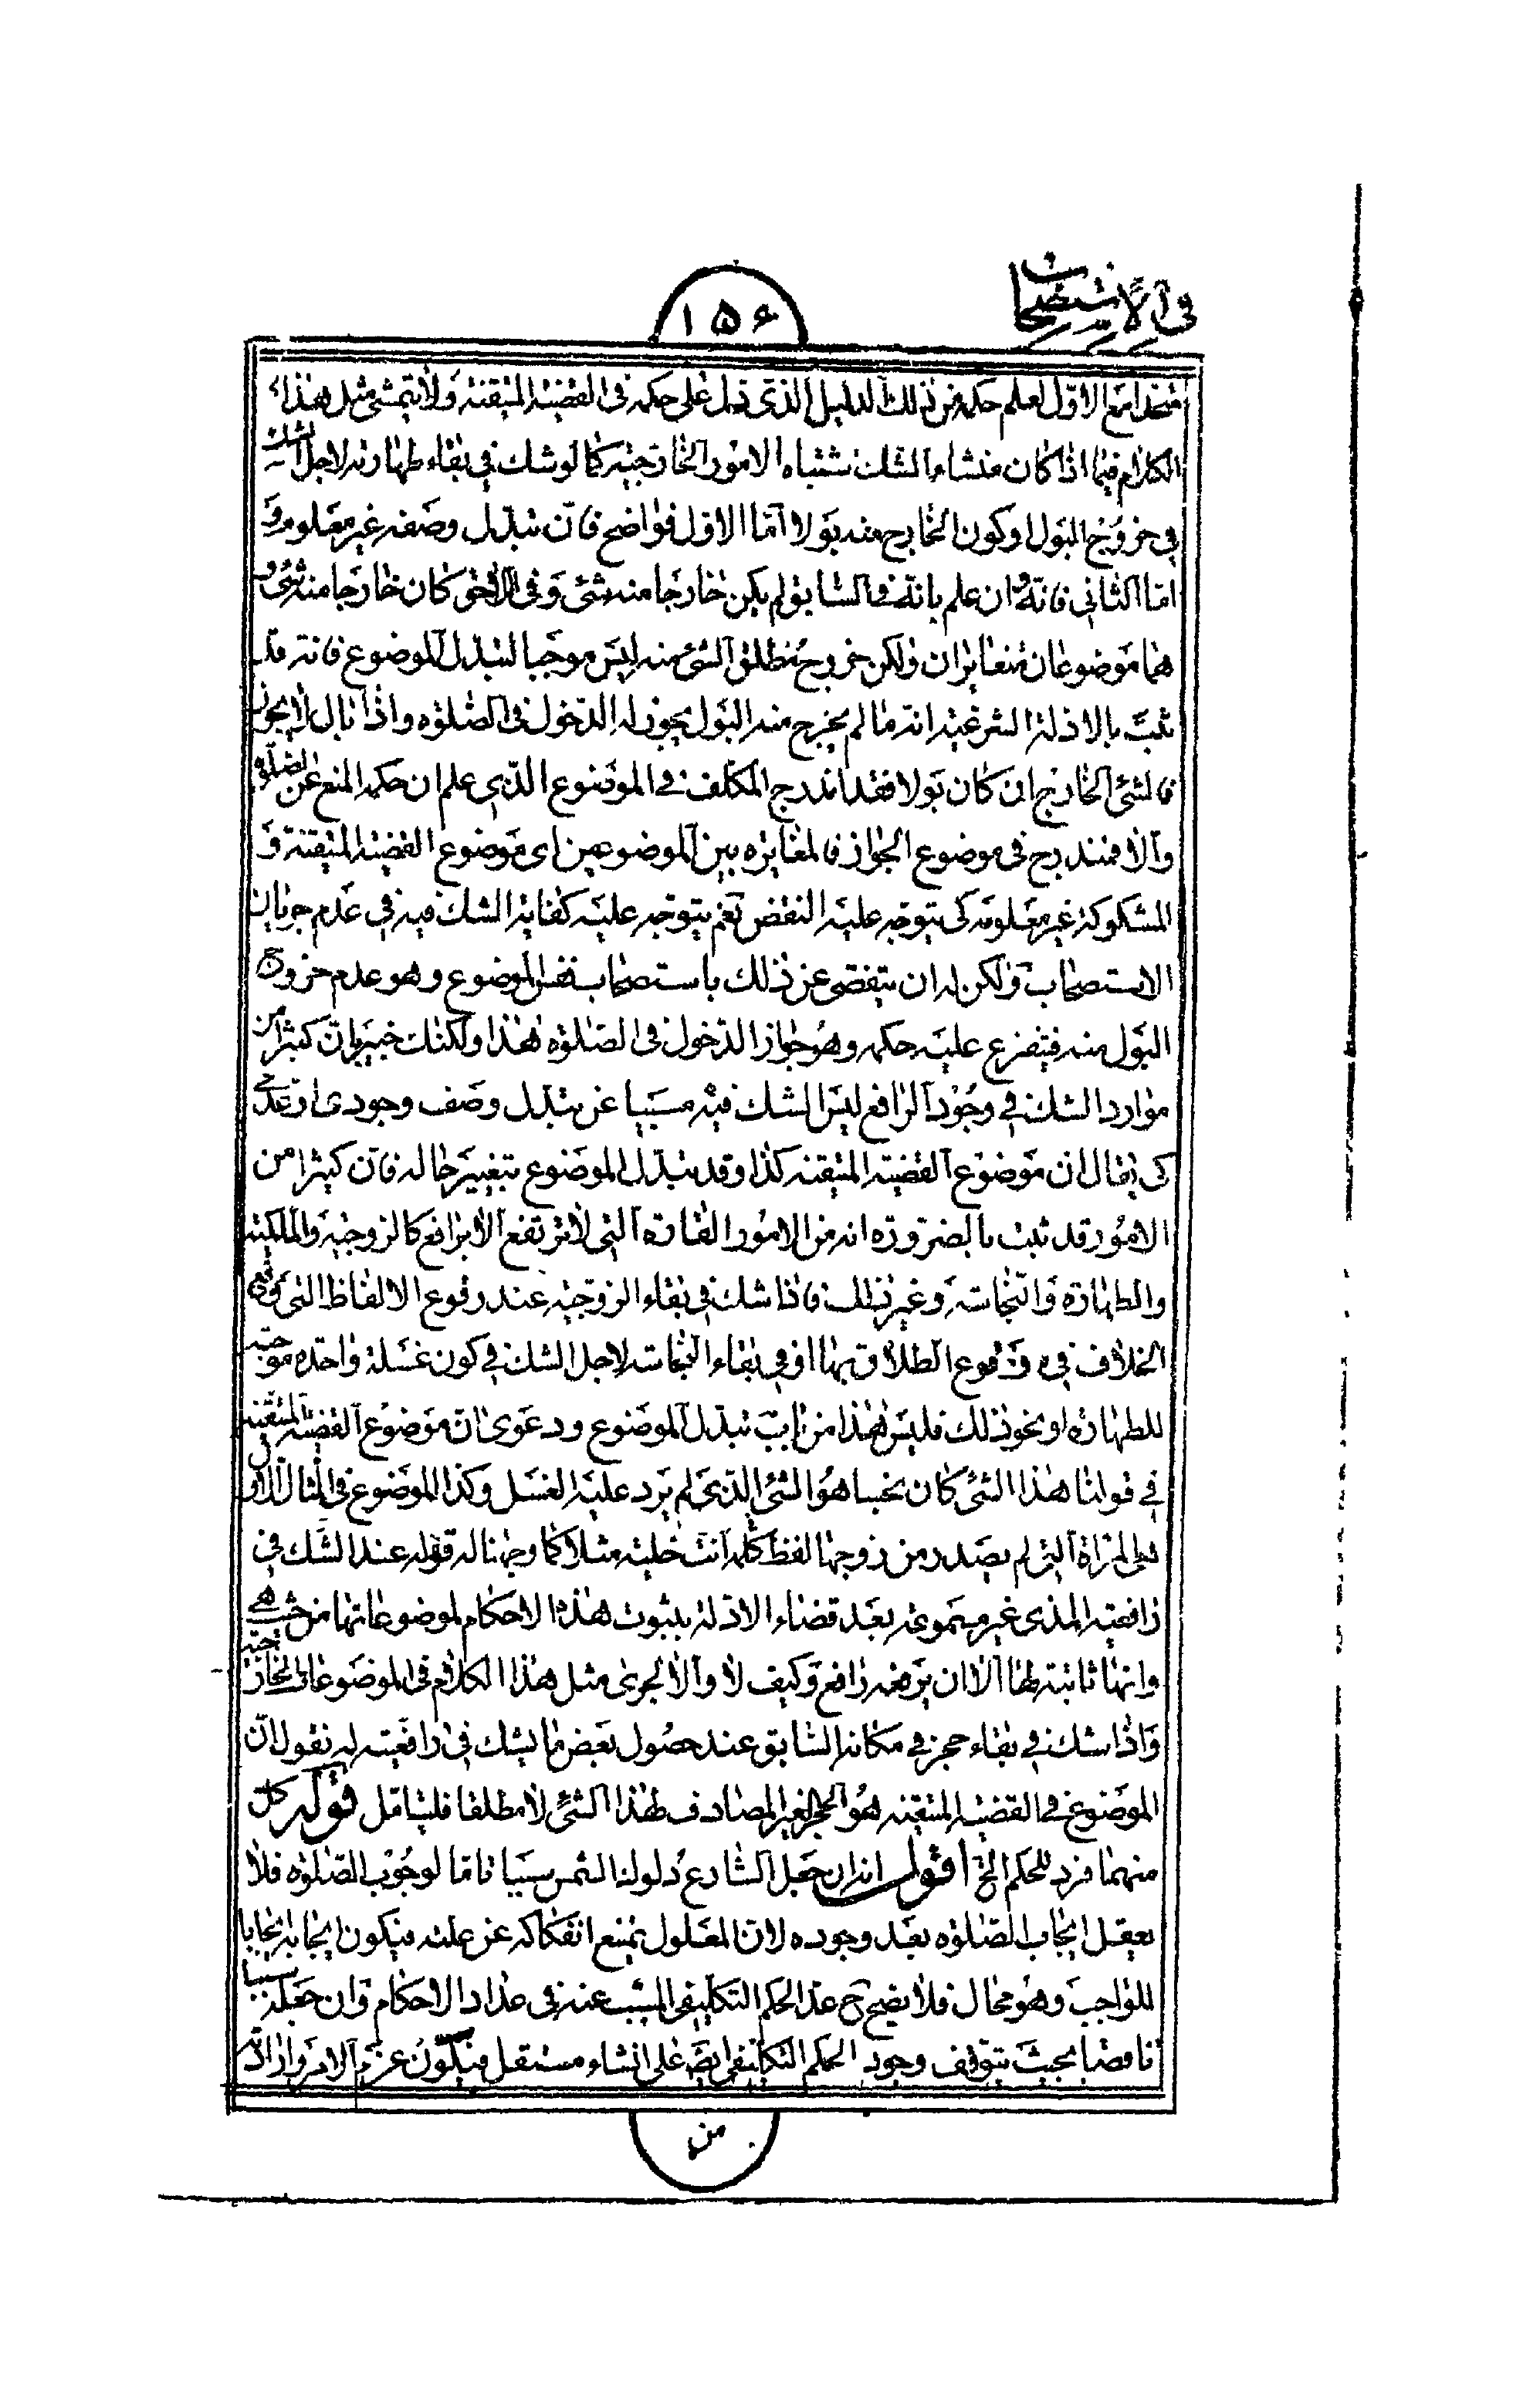 في الاستصحاب
١٥۶
متحدا مع الاول لعلم حكمه من ذلك الدليل الذى دل على حكمه فى القضية المتيقنة ولا يتمشى مثل هذا
الكلام فيما اذا كان منشاء الشك اشتباه الامور الخارجية كما لو شك فى بقاء طهارته لاجل الشك
فى خروج البول او كون الخارج منه بولا اما الاول فواضح فان تبدل وصفه غير معلوم و
اما الثانى فانه وان علم بانه فى السابق لم يكن خارجا منه شئ وفى اللاحق كان خارجا منه شئ و
هما موضوعان متغايران ولكن خروج مطلق الشئ منه ليس موجبا لتبدل الموضوع فانه قد
ثبت بالادلة الشرعية انه ما لم يخرج منه البول يجوز له الدخول فى الصلوة واذا بال لا يجوز
فالشئ الخارج ان كان بولا فقد اندرج المكلف فى الموضوع الذى علم ان حكمه المنع عن الصلوة
والا فمندرج فى موضوع الجواز فالمغايرة بين الموضوعين اى موضوع القضية المتيقنة و
المشكوكة غير معلومة كى يتوجه عليه النقض نعم يتوجه عليه كفاية الشك فيه فى عدم جريان
الاستصحاب ولكن له ان يتفصى عن ذلك باستصحاب نفس الموضوع وهو عدم خروج
البول منه فيتفرع عليه حكمه وهو جواز الدخول فى الصلوة هذا ولكنك خبير بان كثيرا من
موارد الشك فى وجود الرافع ليس الشك فيه مسببا عن تبدل وصف وجودى او عدمى
كى يقال ان موضوع القضية المتيقنة كذا وقد تبدل الموضوع بتغيير حاله فان كثيرا من
الامور قد ثبت بالضرورة انه من الامور القارة التى لا ترتفع الا برافع كالزوجية والملكية
والطهارة والنجاسة وغير ذلك فاذا شك فى بقاء الزوجية عند وقوع الالفاظ التى وقع
الخلاف فى وقوع الطلاق بها او فى بقاء النجاسة لاجل الشك فى كون غسلة واحدة موجبة
للطهارة او نحو ذلك فليس هذا من باب تبدل الموضوع ودعوى ان موضوع القضية المتيقنة
فى قولنا هذا الشئ كان نجسا هو الشئ الذى لم يرد عليه الغسل وكذا الموضوع فى المثال الاول
هى المراة التى لم يصدر من زوجها لفظ كلمه انت خلية مثلا كما وجهنا له قوله عند الشك فى
رافعية المذى غير مسموعة بعد قضاء الادلة بثبوت هذه الاحكام لموضوعاتها من حيث هى
وانها ثابتة لها الا ان يرفعه رافع وكيف لا والا لجرى مثل هذا الكلام فى الموضوعات الخارجية
واذا شك فى بقاء حجر فى مكانه السابق عند حصول بعض ما يشك فى رافعيته له نقول ان
الموضوع فى القضية المتيقنة هو الحجر الغير المصادف لهذا الشئ لا مطلقا فليتامل قوله كل
منهما فرد للحكم الخ اقول انه ان جعل الشارع دلوك الشمس سببا تاما لوجوب الصلوة فلا
يعقل ايجاب الصلوة بعد وجوده لان المعلول يمتنع انفكاكه عن علته فيكون ايجابه ايجابا
للواجب وهو محال فلا يصح ح عد الحكم التكليفى المسبب عنه فى عداد الاحكام وان جعله سببا
ناقصا بحيث يتوقف وجود الحكم التكليفى ايضا على انشاء مستقل فيكون عزم الامر وارادته
من